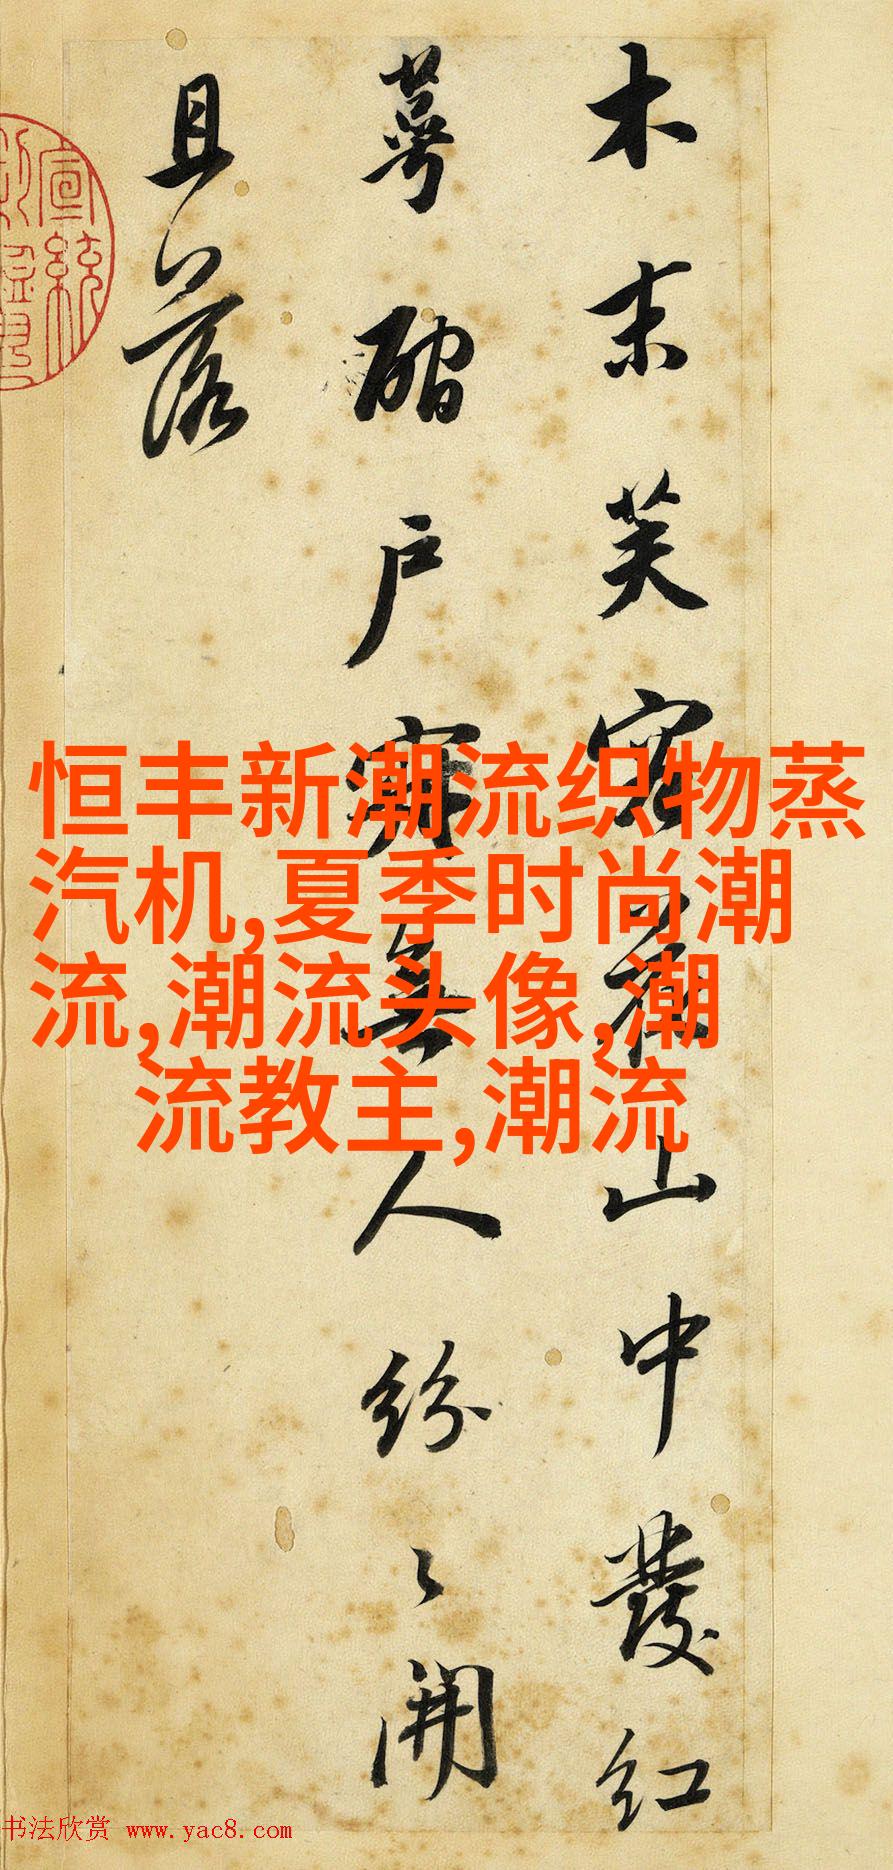 木末芙容花山中發紅
萼磵戶寂無人紛〻開
且落
宣統
恒丰新潮流织物蒸
汽机,夏季时尚潮
流,潮流头像,潮
流教主,潮流
书法欣赏 www.yac8.com